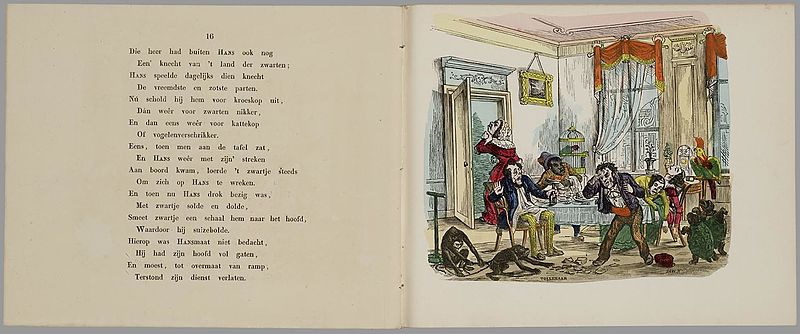 16
Die heer had buiten HANS ook nog
Een' knecht van 't land der zwarten;
HANS speelde dagelijks dien knecht
De vreemdste en zotste parten.
Nú schold hij hem voor kroeskop uit,
Dán weêr voor zwarten nikker,
En dan eens weêr voor kattekop
Of vogelenverschrikker.
Eens, toen men aan de tafel zat,
En HANS weêr met zijn' streken
Aan boord kwam, loerde 't zwartje steeds
Om zich op HANS te wreken.
En toen nu HANS drok bezig was,
Met zwartje solde en dolde,
Smeet zwartje een schaal hem naar het hoofd,
Waardoor hij suizebolde.
Hierop was HANSmaat niet bedacht,
Hij had zijn hoofd vol gaten,
En moest, tot overmaat van ramp,
Terstond zijn dienst verlaten.